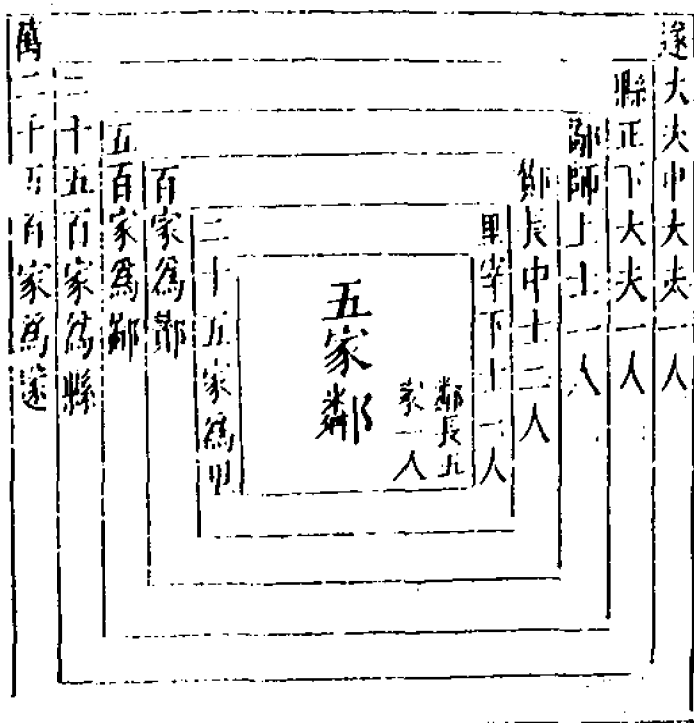 遂大夫中大夫一人
縣正下大夫一人
鄙師上士一人
酇長中士二人
里宰下士一人
鄰長五
家一人
五家鄰
二十五家為里
百家為酇
五百家為鄙
二千五百家為縣
萬二千五百家為遂